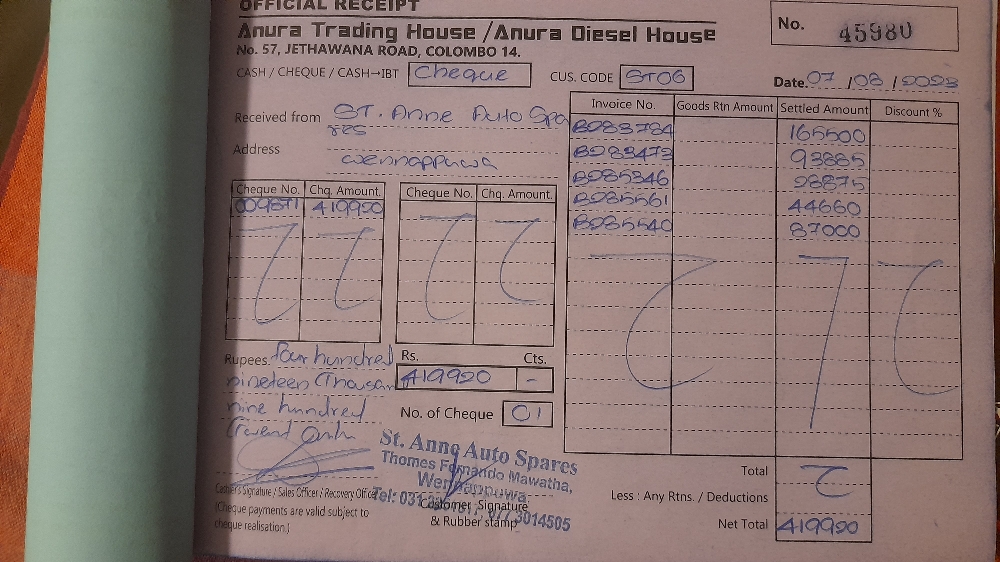 OFFICIAL RECEIPT
Anura Trading House /Anura Diesel House
No. 57, JETHAWANA ROAD, COLOMBO 14.
No. 45980
CASH / CHEQUE / CASH→IBT Cheque CUS. CODE ST06 Date. 07 /08 /2023
Received from ST. Anne Auto Spa
res
Address
wennappuwa
Invoice No. Goods Rtn Amount Settled Amount Discount %
B083784 165500
B083473 93885
B085346 28875
B085561 44660
B085540 87000
Cheque No. Chq. Amount. Cheque No. Chq. Amount.
009871 419920
Rupees. four hundred Rs. Cts.
nineteen Thousan 419920 -
nine hundred No. of Cheque 01
Twent only
St. Anne Auto Spares
Thomes Fernando Mawatha,
Wennappuwa.
Cashier's Signature / Sales Officer / Recovery Officer
Customer Signature
& Rubber stamp
(Cheque payments are valid subject to
cheque realisation.)
Total
Less : Any Rtns. / Deductions
Net Total 419920